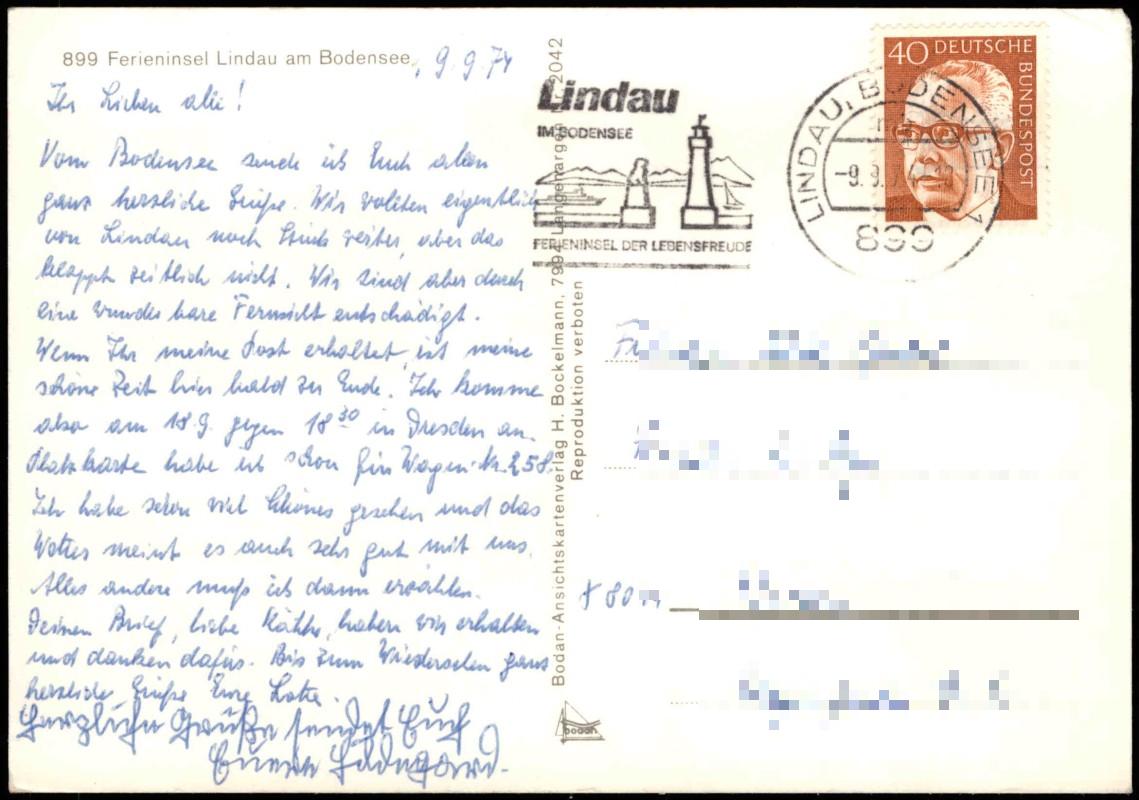 899 Ferieninsel Lindau am Bodensee, 9.9.74
Ihr Lieben alle!
Vom Bodensee sende ich Euch allen
ganz herzliche Grüße. Wir wollten eigentlich
von Lindau noch Stück weiter, aber das
klappt zeitlich nicht. Wir sind aber durch
eine wunderbare Fernsicht entschädigt.
Wenn Ihr meine Post erhaltet, ist meine
schöne Zeit hier bald zu Ende. Ich komme
also am 18.9. gegen 18³⁰ in Dresden an.
Platzkarte habe ich schon für Wagen-Nr. 258.
Ich habe schon viel Schönes gesehen und das
Wetter meint es auch sehr gut mit uns.
Alles andere muß ich dann erzählen.
Deinen Brief, liebe Käthe, haben wir erhalten
und danken dafür. Bis zum Wiedersehen ganz
herzliche Grüße Eure Lotte.
Herzliche Grüße sendet Euch
Eure Hildegard.
Bodan-Ansichtskartenverlag H. Bockelmann, 7994 Langenargen 2042
Reproduktion verboten
Lindau
IM BODENSEE
FERIENINSEL DER LEBENSFREUDE
LINDAU, BODENSEE 1
-9.9.
899
40 DEUTSCHE
BUNDESPOST
80
bodan